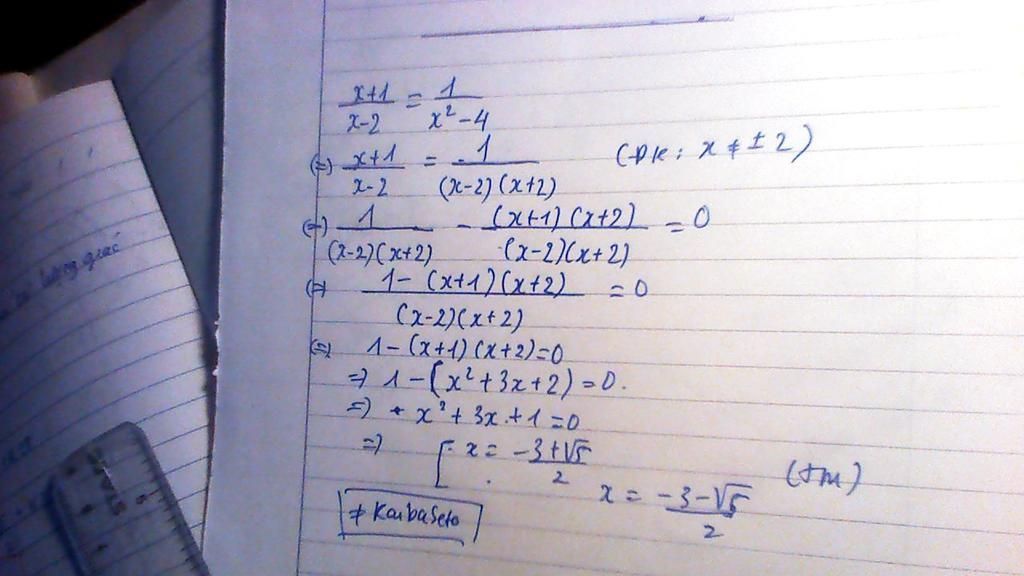 x+1/x-2 = 1/x²-4
(=) x+1/x-2 = 1/(x-2)(x+2) (ĐK: x ≠ ±2)
(=) 1/(x-2)(x+2) - (x+1)(x+2)/(x-2)(x+2) = 0
(=) 1-(x+1)(x+2)/(x-2)(x+2) = 0
(=) 1-(x+1)(x+2)=0
=) 1-(x²+3x+2)=0.
=) x²+3x+1=0
=) [ x = -3+√5/2
x = -3-√5/2 (tm)
≠ KaibaSeto